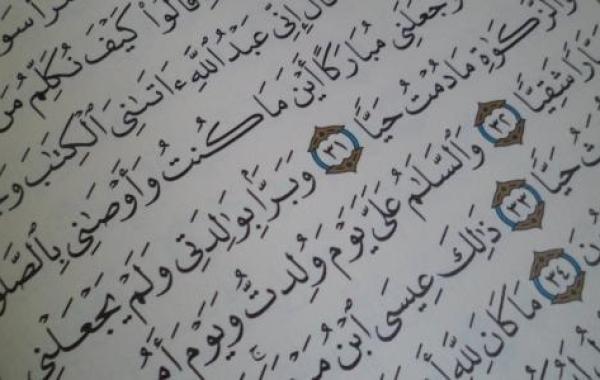 قَالُوا۟ كَيْفَ نُكَلِّمُ مَن
قَالَ إِنِّى عَبْدُ ٱللَّهِ ءَاتَىٰنِىَ ٱلْكِتَٰبَ
وَجَعَلَنِى مُبَارَكًا أَيْنَ مَا كُنتُ وَأَوْصَٰنِى بِٱلصَّلَو
وَٱلزَّكَوٰةِ مَا دُمْتُ حَيًّا ٣١ وَبَرًّۢا بِوَٰلِدَتِى وَلَمْ يَجْعَلْنِى
شَقِيًّا ٣٢ وَٱلسَّلَٰمُ عَلَىَّ يَوْمَ وُلِدتُّ وَيَوْمَ أَمُ
حَيًّا ٣٣ ذَٰلِكَ عِيسَى ٱبْنُ
٣٤ مَا كَانَ لِلَّهِ